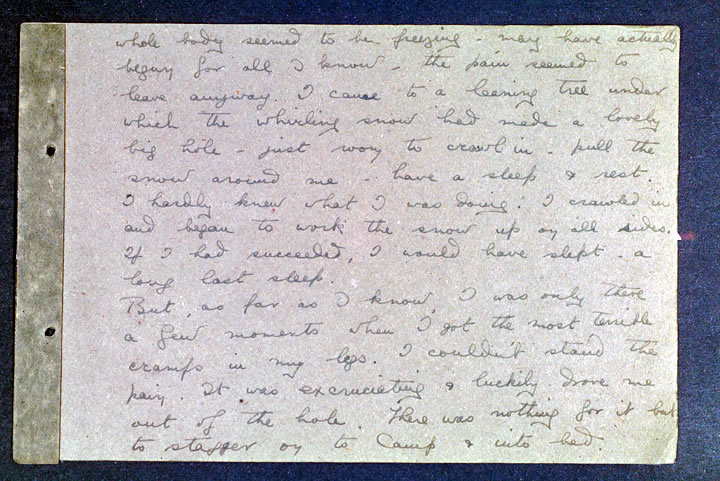 whole body seemed to be freezing - may have actually
begun for all I know - the pain seemed to
leave anyway. I came to a leaning tree under
which the whirling snow had made a lovely
big hole - just room to crawl in - pull the
snow around me - have a sleep & rest.
I hardly knew what I was doing. I crawled in
and began to work the snow up on all sides.
If I had succeeded, I would have slept - a
long last sleep.
But, as far as I know, I was only there
a few moments when I got the most terrible
cramps in my legs. I couldn't stand the
pain. It was excruciating & luckily drove me
out of the hole. There was nothing for it but
to stagger on to Camp & into bed.